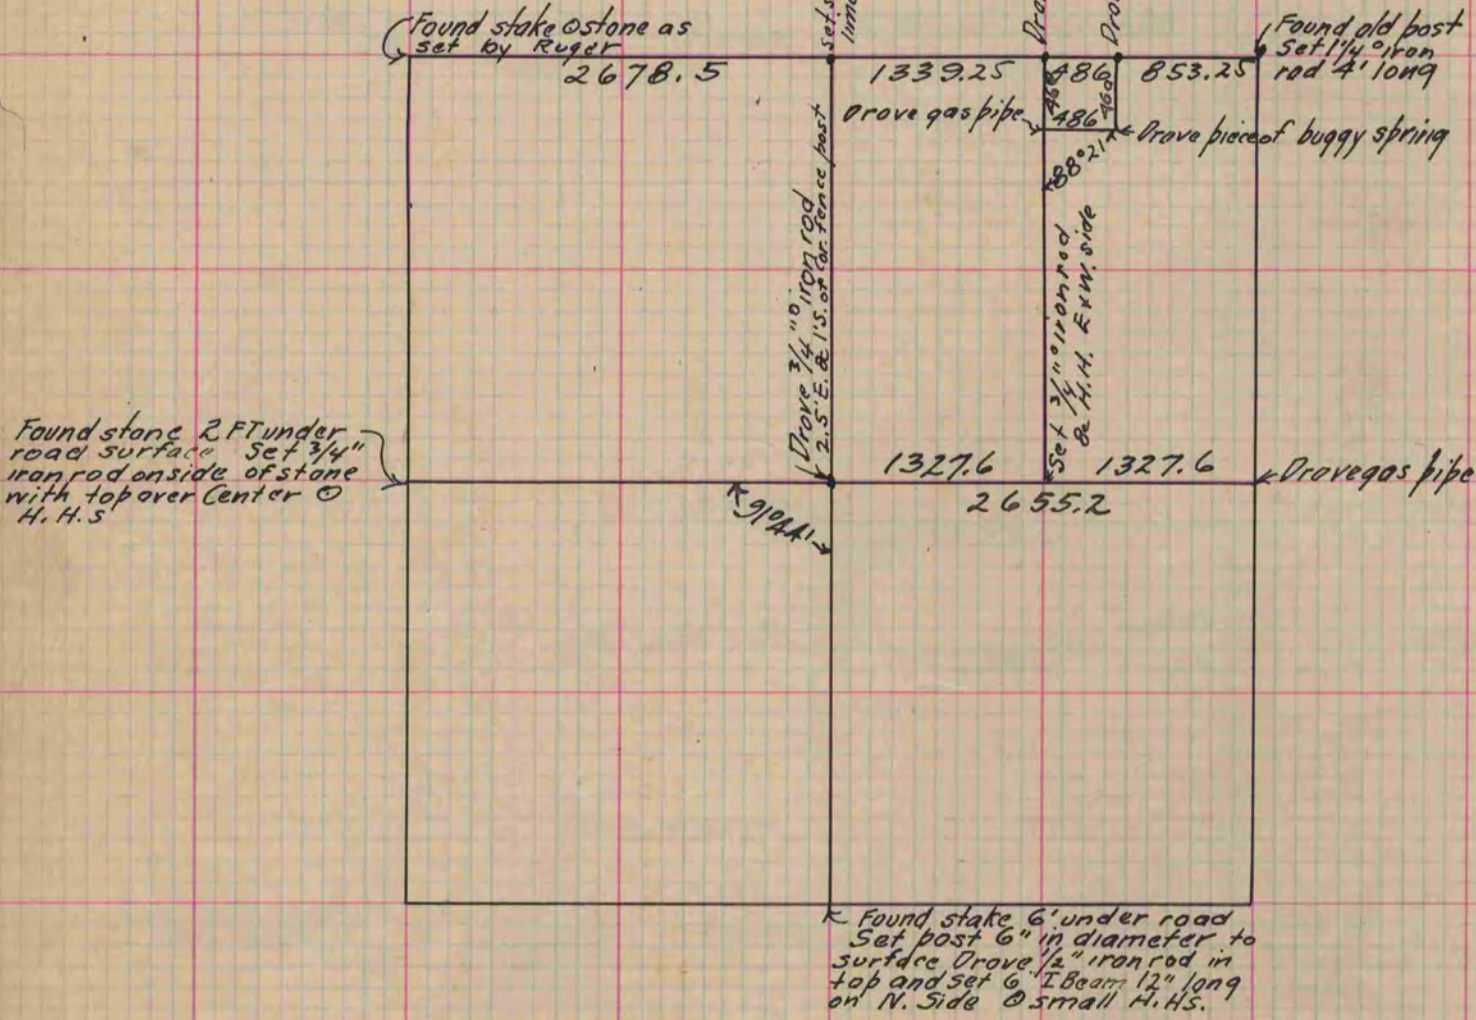 Found stake & stone as
set by Ruger
2678.5
1339.25
486
853.25
Found old post
Set 1 1/4"° iron
rod 4' long
Drove gas pipe
460
486
460
Drove piece of buggy spring
88°21'
Drove 3/4"° iron rod
2.5' E. & 1' S. of Cor. fence post
Set 3/4"° iron rod
& H.H. E & W. side
Found stone 2 FT under
road surface Set 3/4"
iron rod on side of stone
with top over Center &
H.H.s
1327.6
1327.6
Drove gas pipe
2655.2
91°44'
Found stake 6' under road
Set post 6" in diameter to
surface Drove 1/2" iron rod in
top and set 6" I Beam 12" long
on N. Side & small H.Hs.